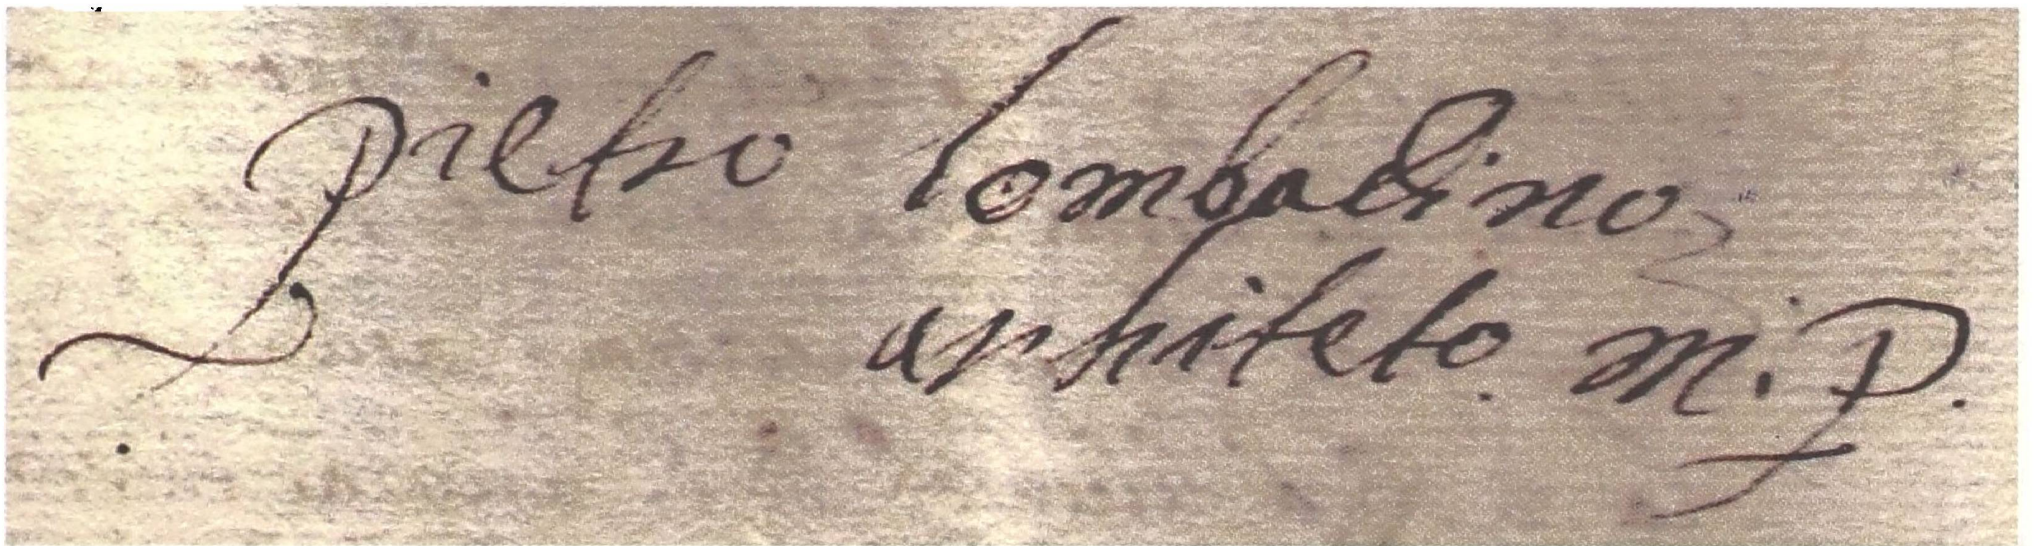 Pietro lombadino
arhiteto m. P.